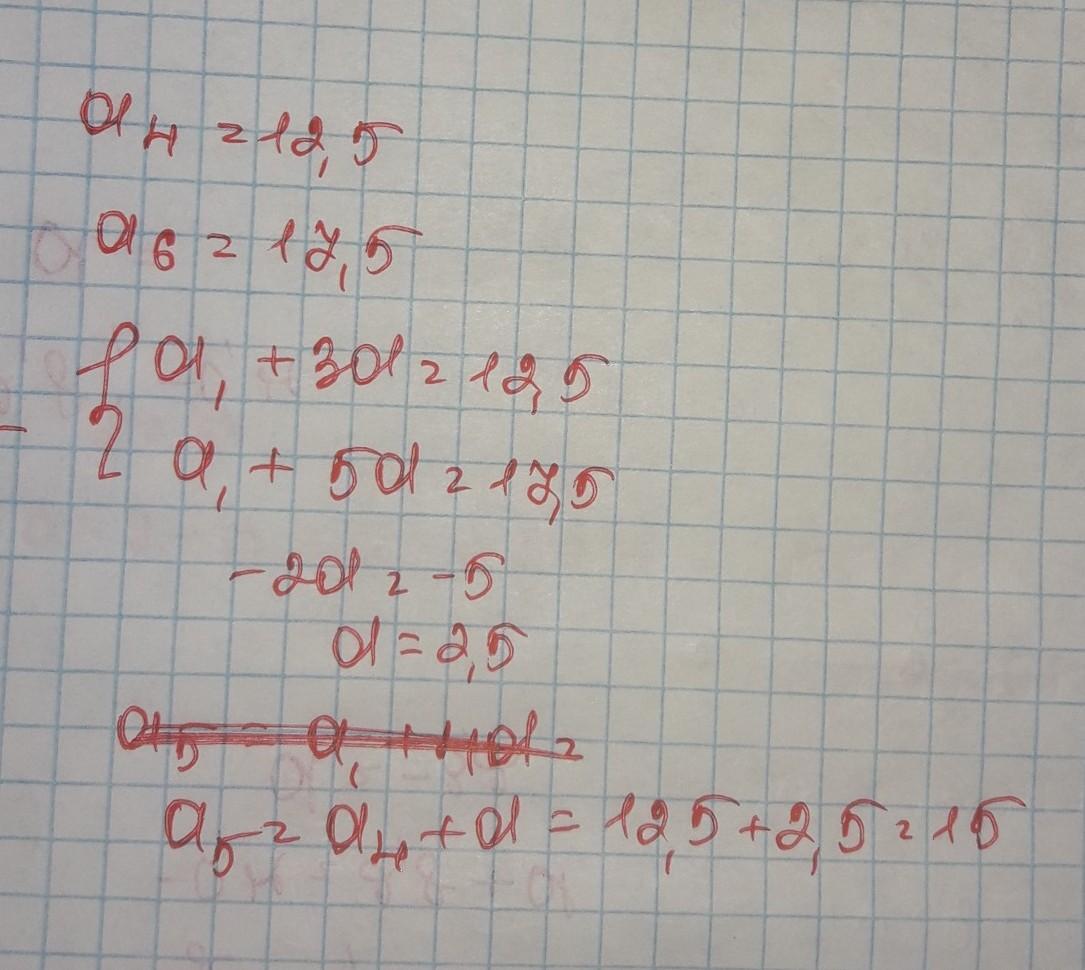 a₄ = 12,5
a₆ = 17,5
{ a₁ + 3d = 12,5
- { a₁ + 5d = 17,5
-2d = -5
d = 2,5
a₅ = a₁ + 4d =
a₅ = a₄ + d = 12,5 + 2,5 = 15